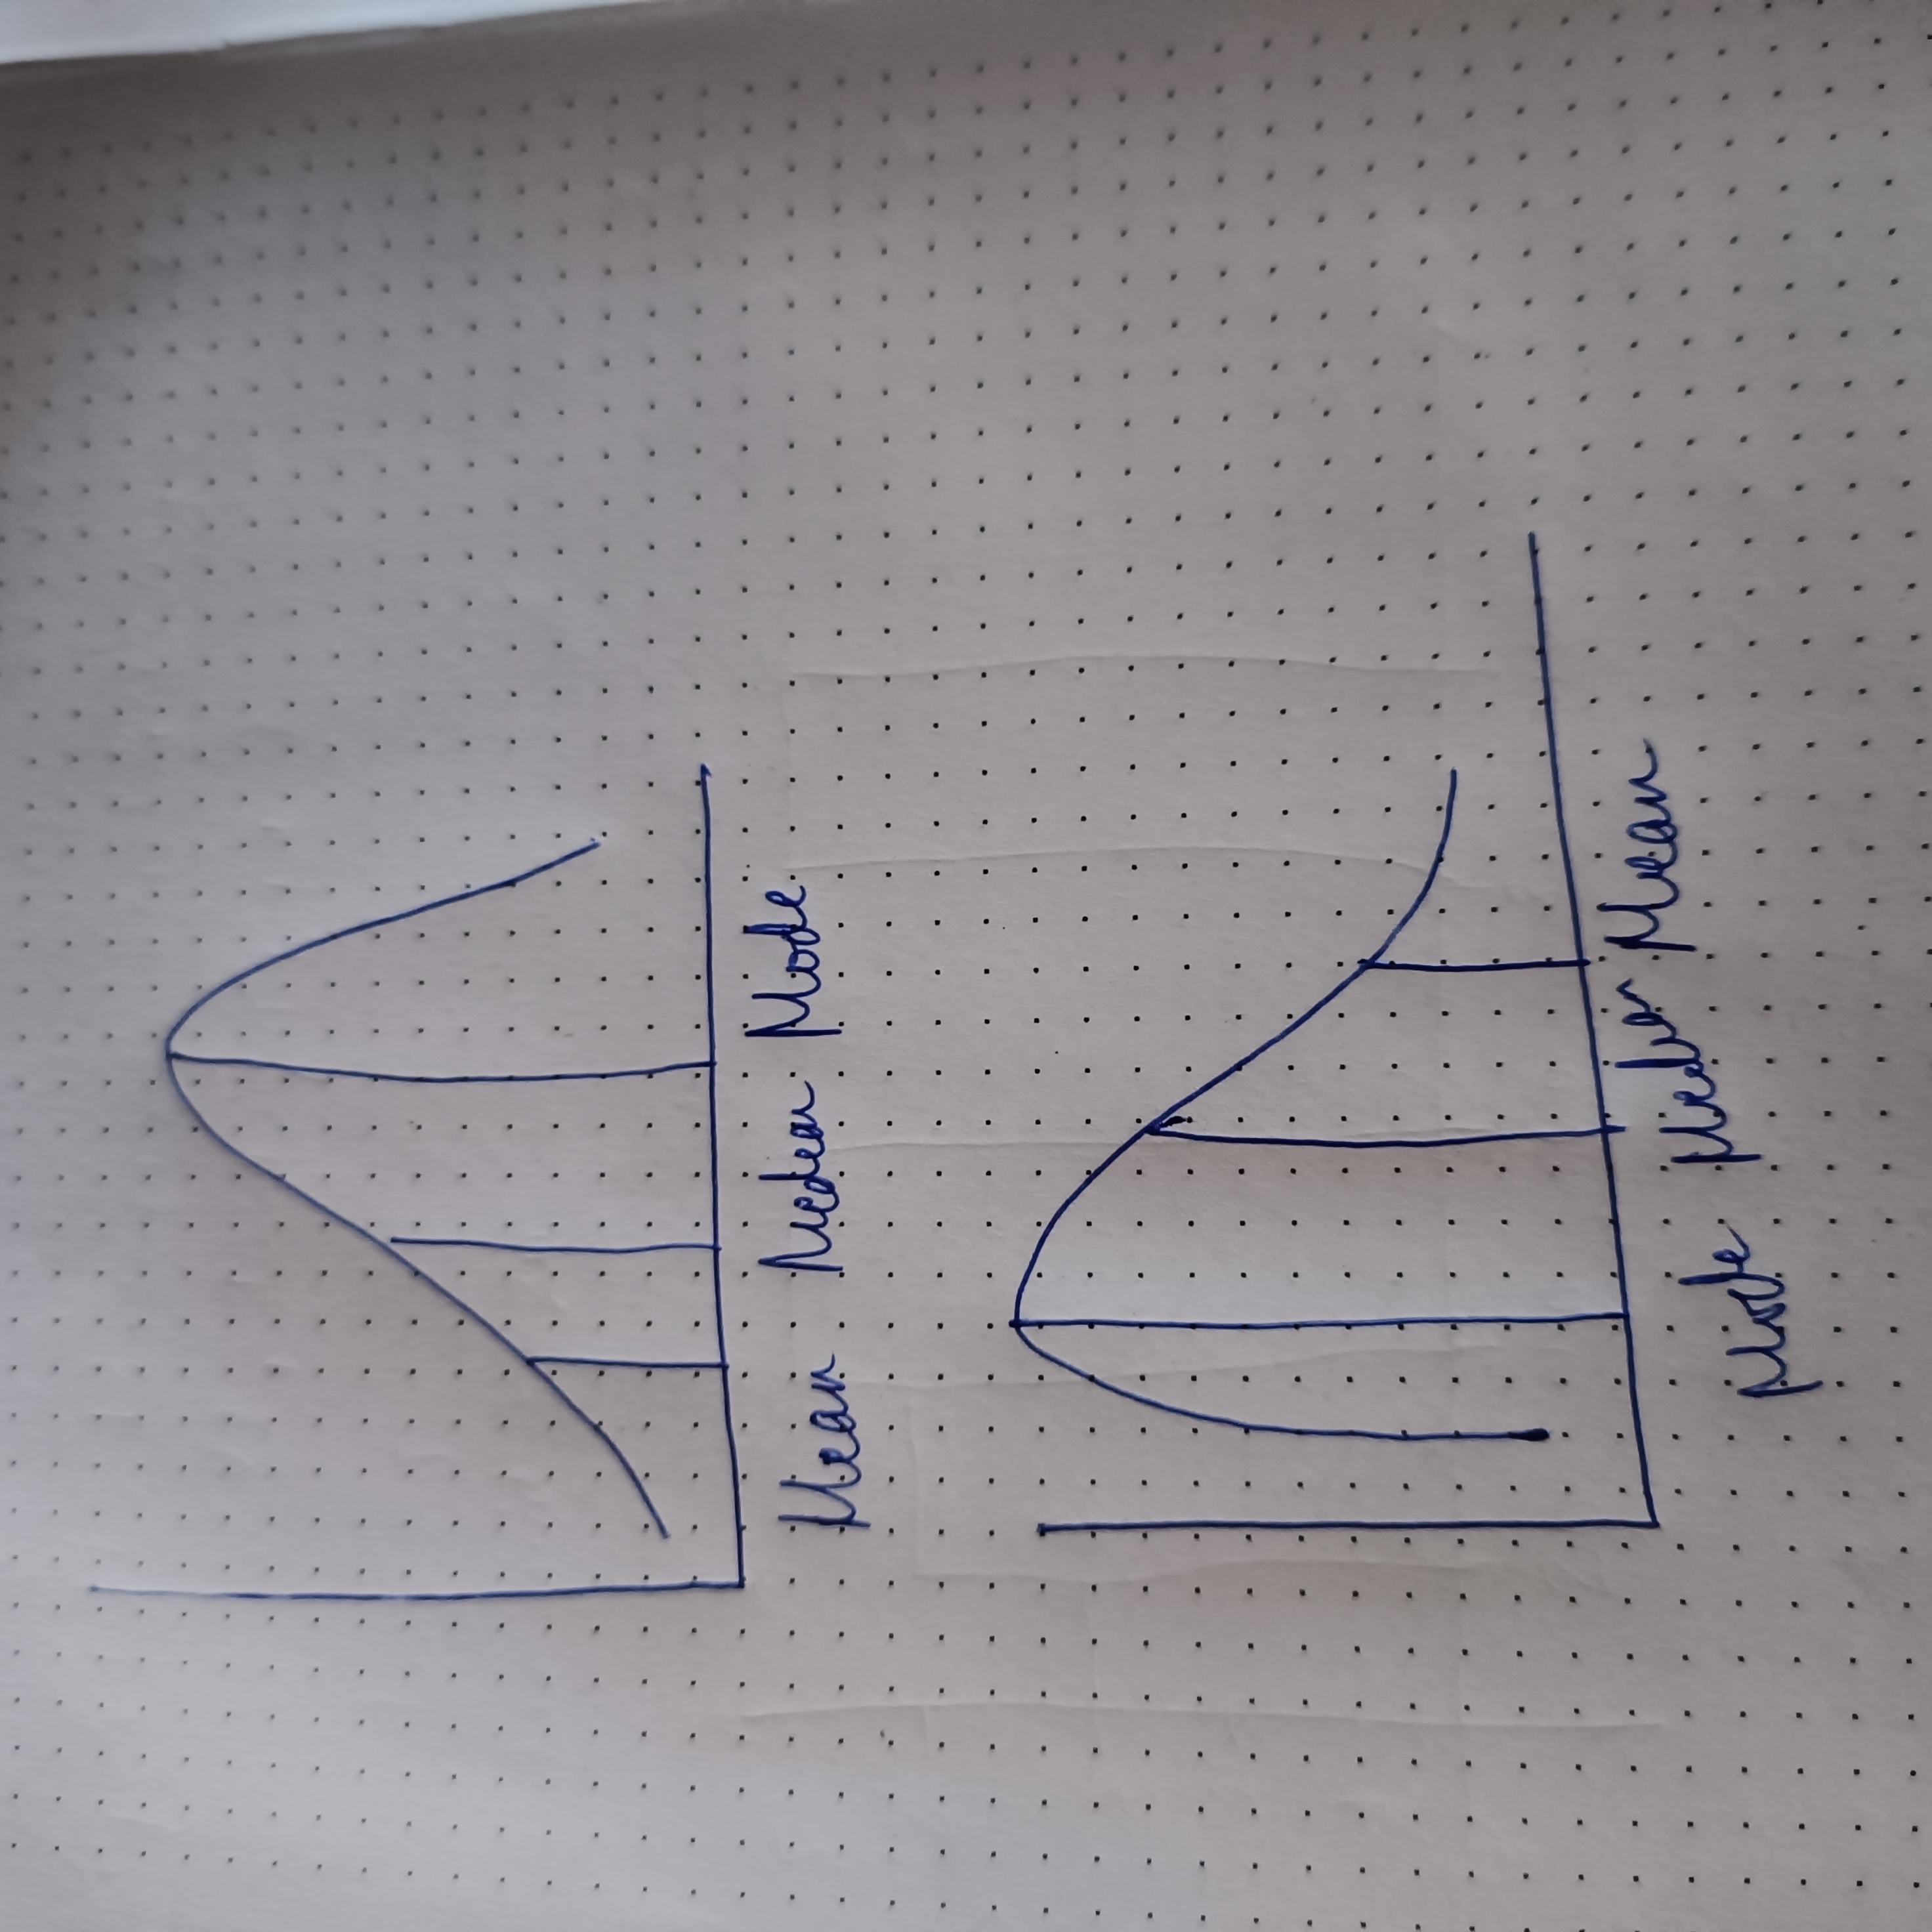 Mean Median Mode
Mode Median Mean